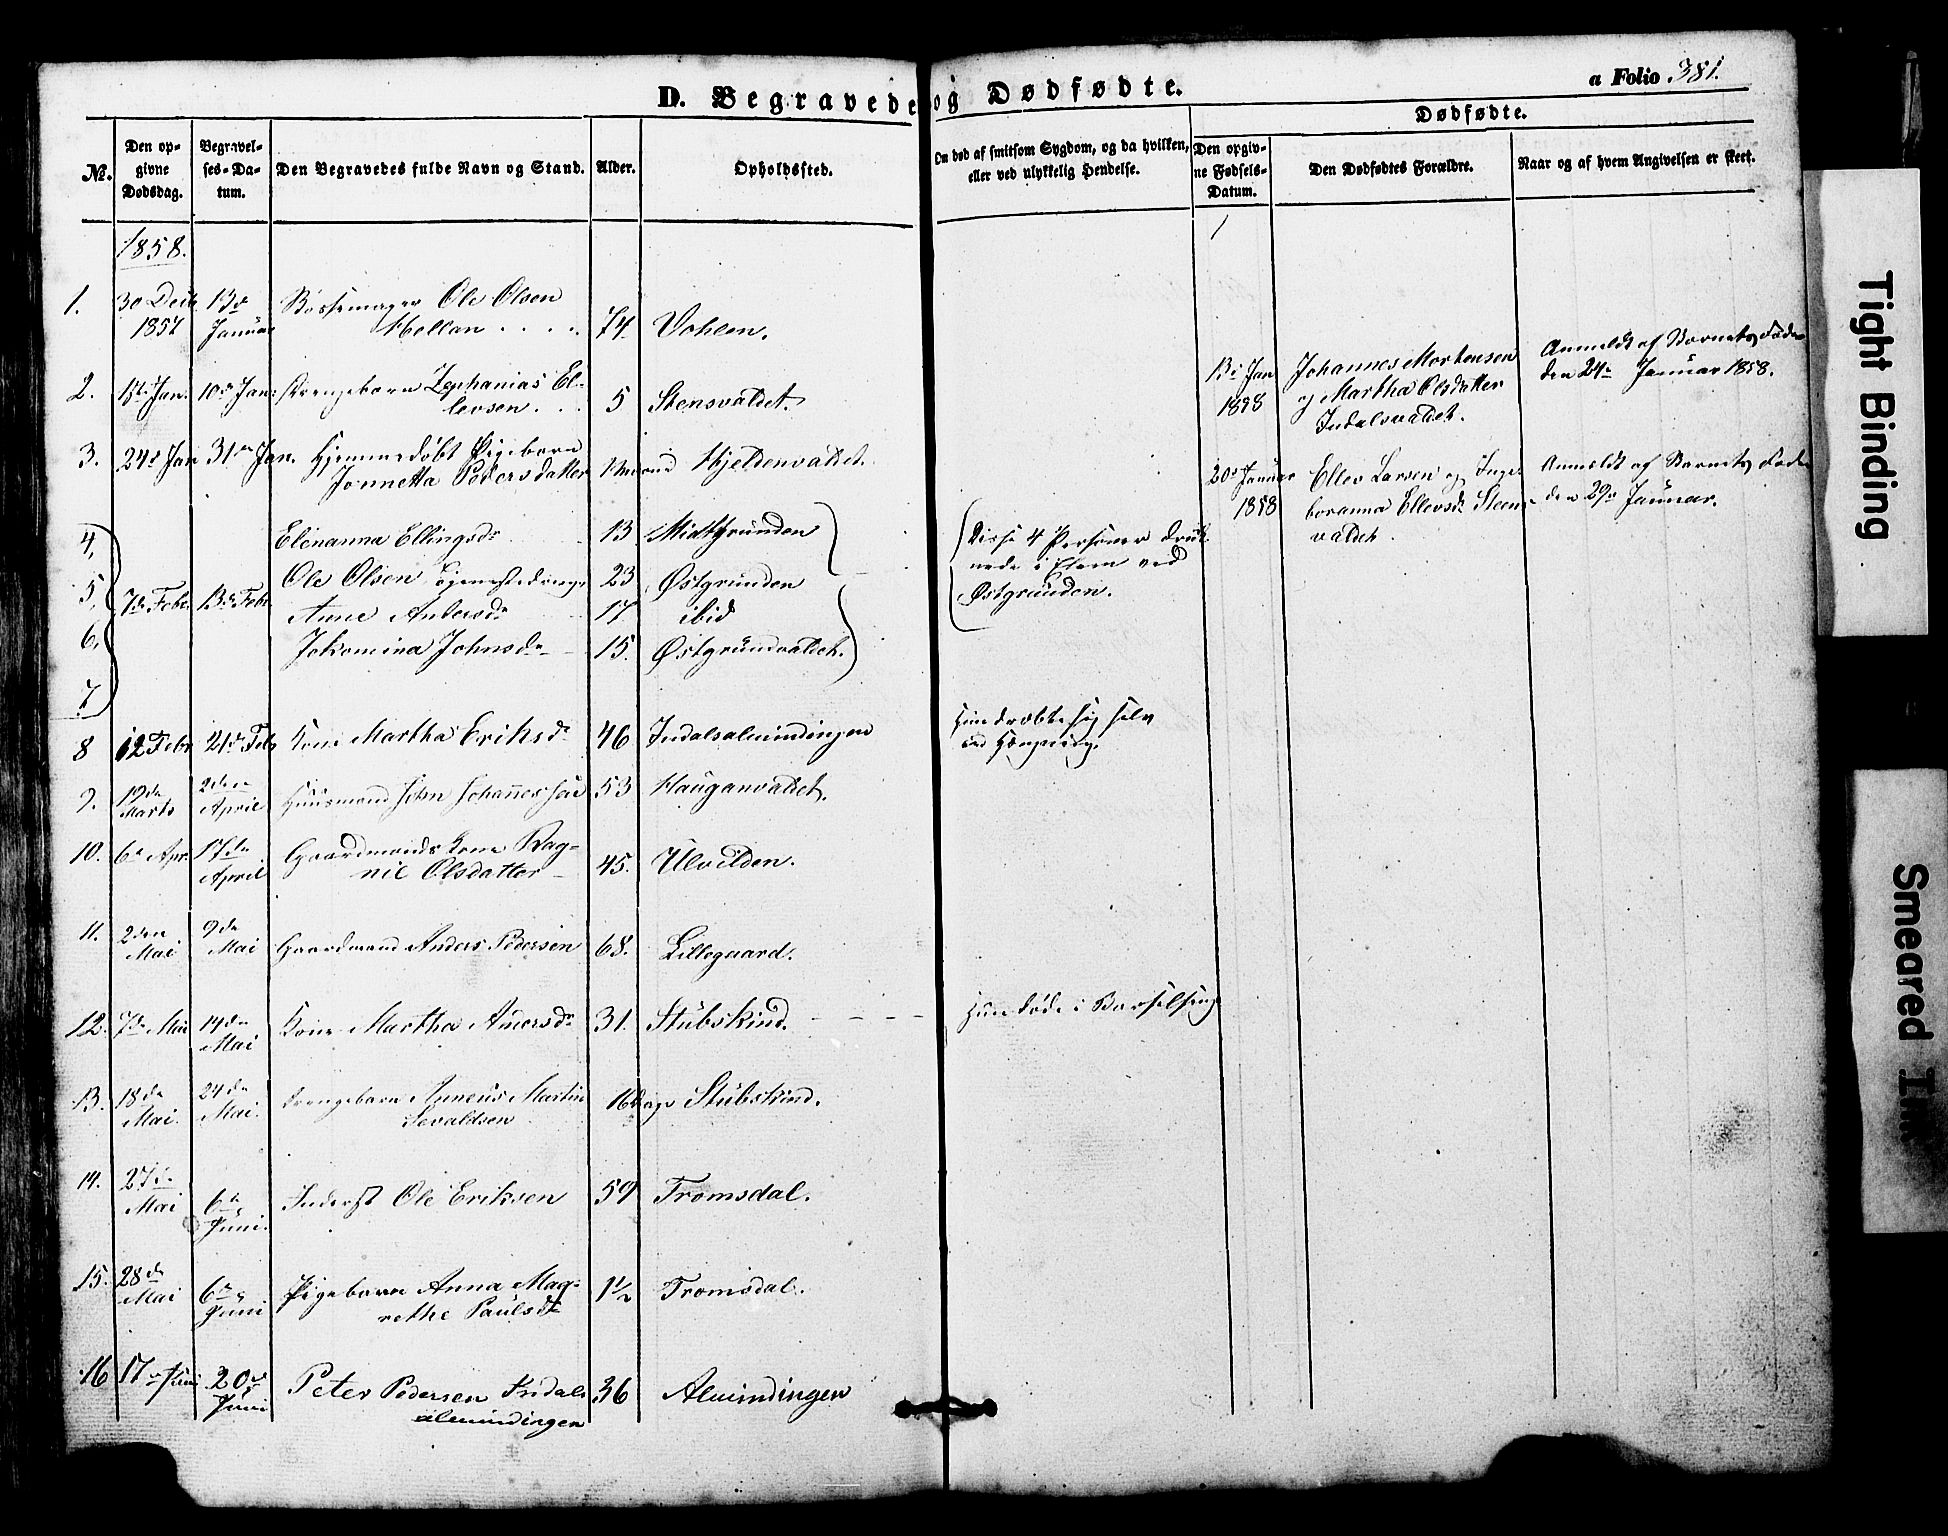 a Folio 381.
D. Begravede og Dødfødte.
Dødfødte.
No.
Den opgivne Dødsdag.
Begravelses-Datum.
Den Begravedes fulde Navn og Stand.
Alder.
Opholdssted.
Om død af smitsom Sygdom, og da hvilken, eller ved ulykkelig Hendelse.
Den opgivne Fødsels-Datum.
Den Dødfødtes Forældre.
Naar og af hvem Angivelsen er skeet.
1858.
1. 30 Decb 1857 13de Januar Bøssemager Ole Olsen
Hellan . . . . 74 Vohlen.
2. Jan. 10de Jan: Drengebarn Zephanias El-
levsen . . . 5 Stensvaldet.
3. 24de Jan 31te Jan. Hjemmedøbt Pigebarn
Jonnetta Pedersdatter Hjeldenvaldet.
4, Elenanna Ellingsdr 13 Midtgrunden
5, 7de Febr. 13de Febr. Ole Olsen 23 Østgrunden
6. Anne Andersdr 17 ibid
7 Jokomina Johnsdr 15. Østgrundvaldet.
Disse 4 Personer druk-
nede i Elven ved
Østgrunden.
8 12 Febr 21de Febr Kone Martha Eriksdr 46 Indalsalmindingen
Hun dræbte sig selv
ved Hængning.
9. 19de Marts 2den April Huusmand John Johannessen 53 Hauganvaldet.
10. 6te Apr. 17de April Gaardmands Kone Rag-
nil Olsdatter 45. Ulvilden.
11. 2den Mai 9de Mai Gaardmand Anders Pedersen 68. Lillegaard.
12. 7de Mai 14de Mai Kone Martha Andersdr 31. Stubskind.
Hun døde i Barselseng
13. 18de Mai. 24de Mai. Drengebarn Anneus Martin
Sevaldsen 16 Dage Stubskind.
14. 27de Mai 6te Juni. Inderst Ole Eriksen 59 Tromsdal.
15. 28de Mai 6te Juni Pigebarn Anna Mag-
rethe Paulsdr 1½ Tromsdal.
16 17de Juni 20de Juni Peter Pedersen Indals
almindingen 36 Almindingen
13de Jan 1858 Johannes Mortensen
og Martha Olsdatter
Indalsvaldet.
Anmeldt af Barnets Fader
den 24de Januar 1858.
20de Januar 1858 Ellev Larsen og Inge-
boranna Ellevsdr Steens-
valdet.
Anmeldt af Barnets Fader
den 29de Januar.
Tight Binding
Smeared Ink